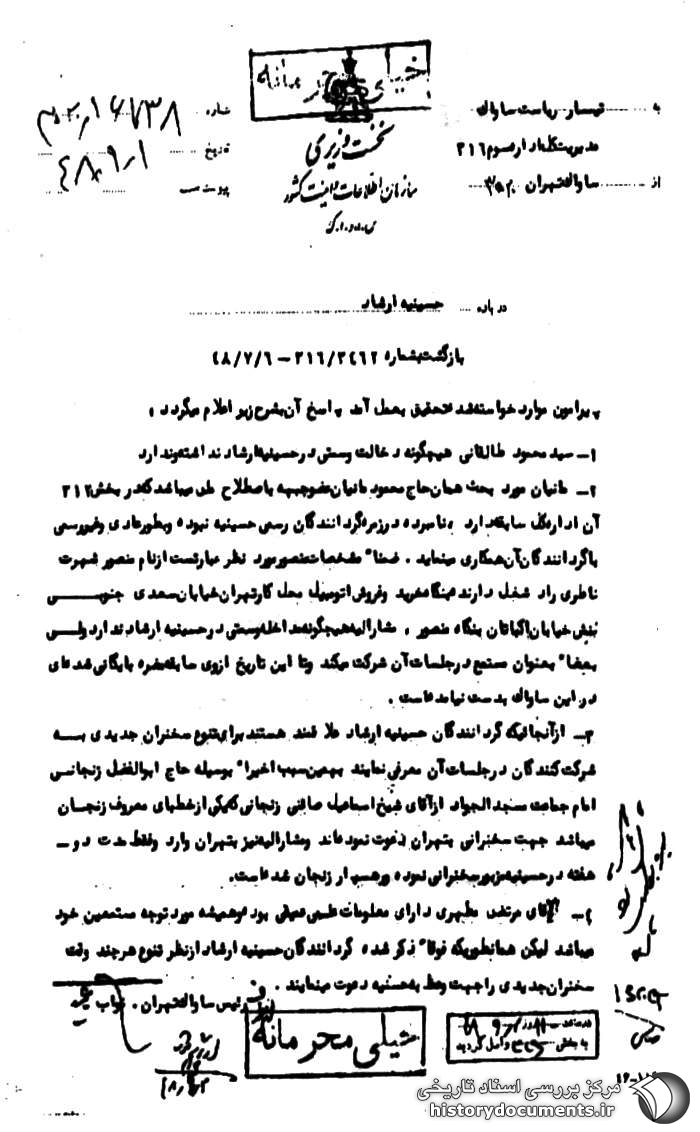 خیلی محرمانه
نخست وزیری
سازمان اطلاعات و امنیت کشور
س.ا.و.ا.ک
به تیمسار ریاست ساواک
مدیریت کل اداره سوم ۳۱۶
از ساواک تهران ۳۵۲۰
شماره
تاریخ ۴۸,۹,۱
پیوست
درباره حسینیه ارشاد
بازگشت بشماره ۳۱۶/۲۴۶۲ – ۴۸/۷/۶
پیرامون موارد خواسته شده تحقیق بعمل آمد پاسخ آن بشرح زیر اعلام میگردد ،
۱– سید محمود طالقانی هیچگونه دخالت وسمتی در حسینیه ارشاد نداشته و ندارد
۲– مانیان مورد بحث همان حاج محمود مانیان عضو جبهه باصطلاح ملی میباشد که در بخش ۳۱۲
آن اداره کل سابقه دارد ، نامبرده در زمره گردانندگان رسمی حسینیه نبوده و بطور عادی و غیررسمی
با گردانندگان آن همکاری مینماید . ضمنا" مشخصات منصور مورد نظر عبارتست از نام منصور شهرت
ناطری راد شغل دارنده بنگاه خرید وفروش اتومبیل محل کار تهران خیابان سعدی جنوبی
نبش خیابان اکباتان بنگاه منصور . مشارالیه هیچگونه مداخله وسمتی در حسینیه ارشاد ندارد ولی
بعضا" بعنوان مستمع در جلسات آن شرکت میکند وتا این تاریخ ازوی سابقه مضره بایگانی شده ای
در این ساواک بدست نیامده است .
۳– ازآنجائیکه گردانندگان حسینیه ارشاد علاقمند هستند برای تنوع سخنران جدیدی بــه
شرکت کنندگان در جلسات آن معرفی نمایند بهمین سبب اخیرا" بوسیله حاج ابوالفضل زنجانی
امام جماعت مسجد الجواد ازآقای شیخ اسماعیل صائنی زنجانی که یکی از خطبای معروف زنجان
میباشد جهت سخنرانی بتهران دعوت نموده اند ومشارالیه نیز بتهران وارد وفقط مدت دو –
هفته در حسینیه مزبور سخنرانی نموده ورهسپار زنجان شده است.
۴– آقای مرتضی مطهری دارای معلومات علمی عمیقی بوده وهمیشه مورد توجه مستمعین خود
میباشد لیکن همانطوریکه فوقا" ذکر شده گردانندگان حسینیه ارشاد از نظر تنوع هر چند وقت
سخنران جدیدی را جهت وعظ به حسنیه دعوت مینمایند .
رئیس ساواک تهران . نواب
خیلی محرمانه
مرکز بررسی اسناد تاریخی
historydocuments.ir